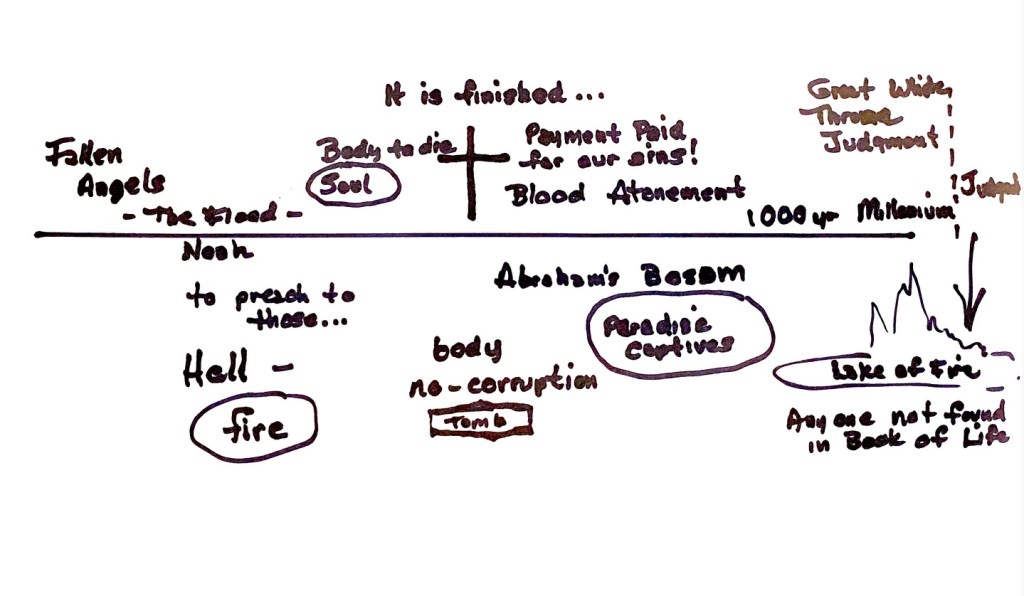 It is finished...
Great White
Throne
Judgment
Fallen
Angels
- The Flood -
Body to die
Soul
Payment Paid
for our sins!
Blood Atonement
1000 yr Millenium
Judged
Noah
to preach to
those...
Hell -
fire
Abraham's Bosom
Paradise
captives
body
no-corruption
Tomb
Lake of Fire
Any one not found
in Book of Life